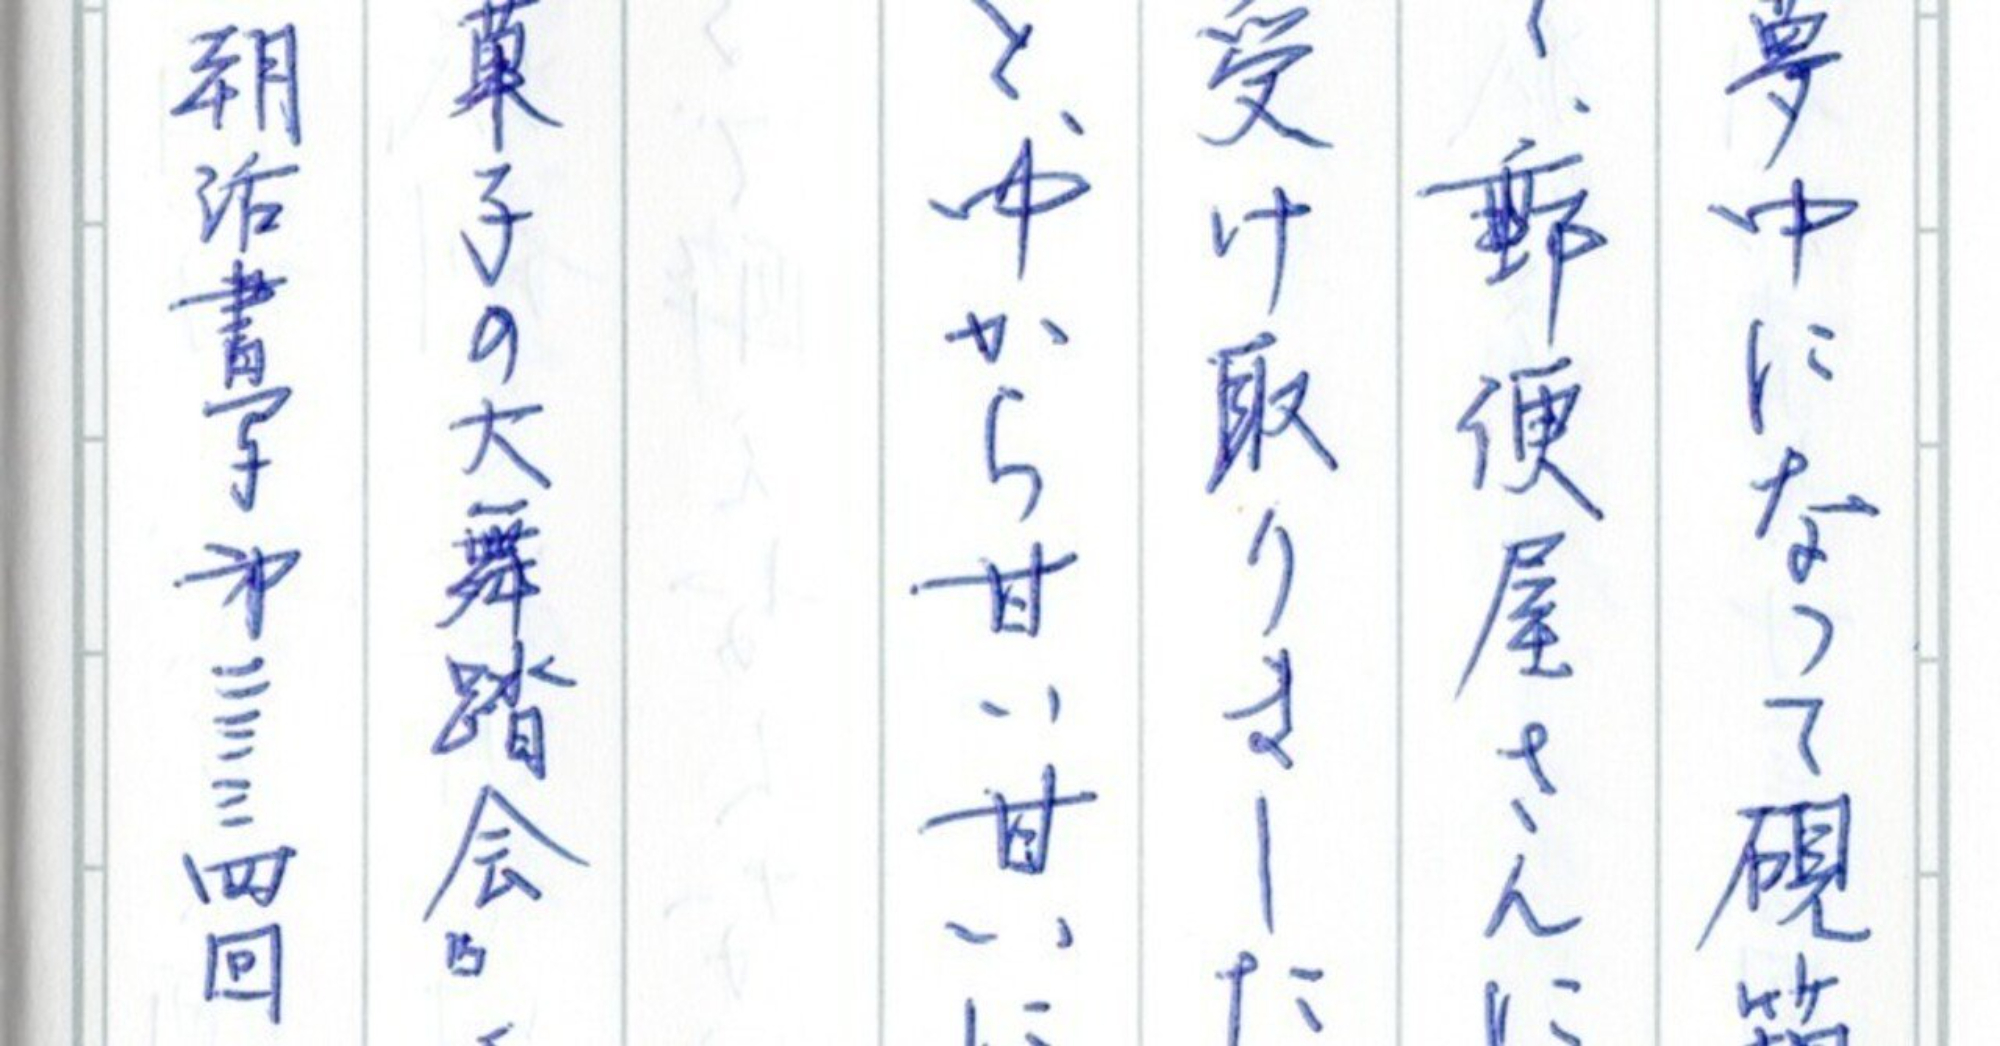 夢中になって硯箱
く、郵便屋さんに
受け取りました
と、中から甘い甘いに
菓子の大舞踏会』
朝活書写 第三三三四回